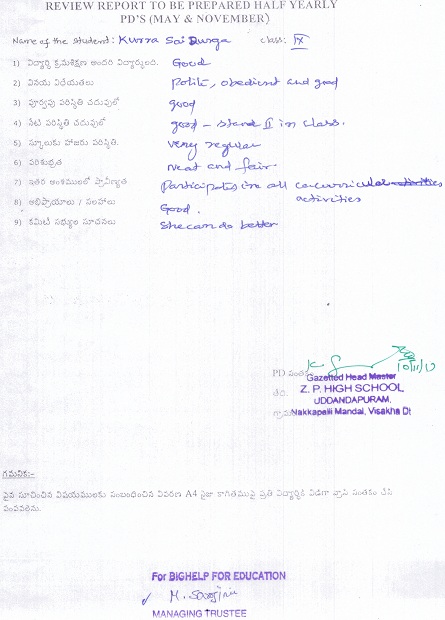 REVIEW REPORT TO BE PREPARED HALF YEARLY
PD'S (MAY & NOVEMBER)
Name of the student: Kurra Sai Durga class: IX
1) విద్యార్థి క్రమశిక్షణ అందరి విద్యార్థులది. Good
2) వినయ విధేయతలు Polite, obedient and good
3) పూర్వపు పరిస్థితి చదువులో good
4) నేటి పరిస్థితి చదువులో good - stand II in class.
5) స్కూలుకు హాజరు పరిస్థితి. very regular
6) పరిశుభ్రత neat and fair
7) ఇతర అంశములలో ప్రావీణ్యత Participates in all cocurricular activities
activities
8) అభిప్రాయాలు / సలహాలు Good.
9) కమిటీ సభ్యుల సూచనలు She can do better
PD సంతకం
10/11/17
Gazetted Head Master
తేది. Z. P. HIGH SCHOOL
UDDANDAPURAM,
గ్రామ Nakkapalli Mandal, Visakha Dt
గమనిక:-
పైన సూచించిన విషయములకు సంబంధించిన వివరణ A4 సైజు కాగితముపై ప్రతి విద్యార్థికి విడిగా వ్రాసి సంతకం చేసి
పంపవలెను.
For BIGHELP FOR EDUCATION
MANAGING TRUSTEE